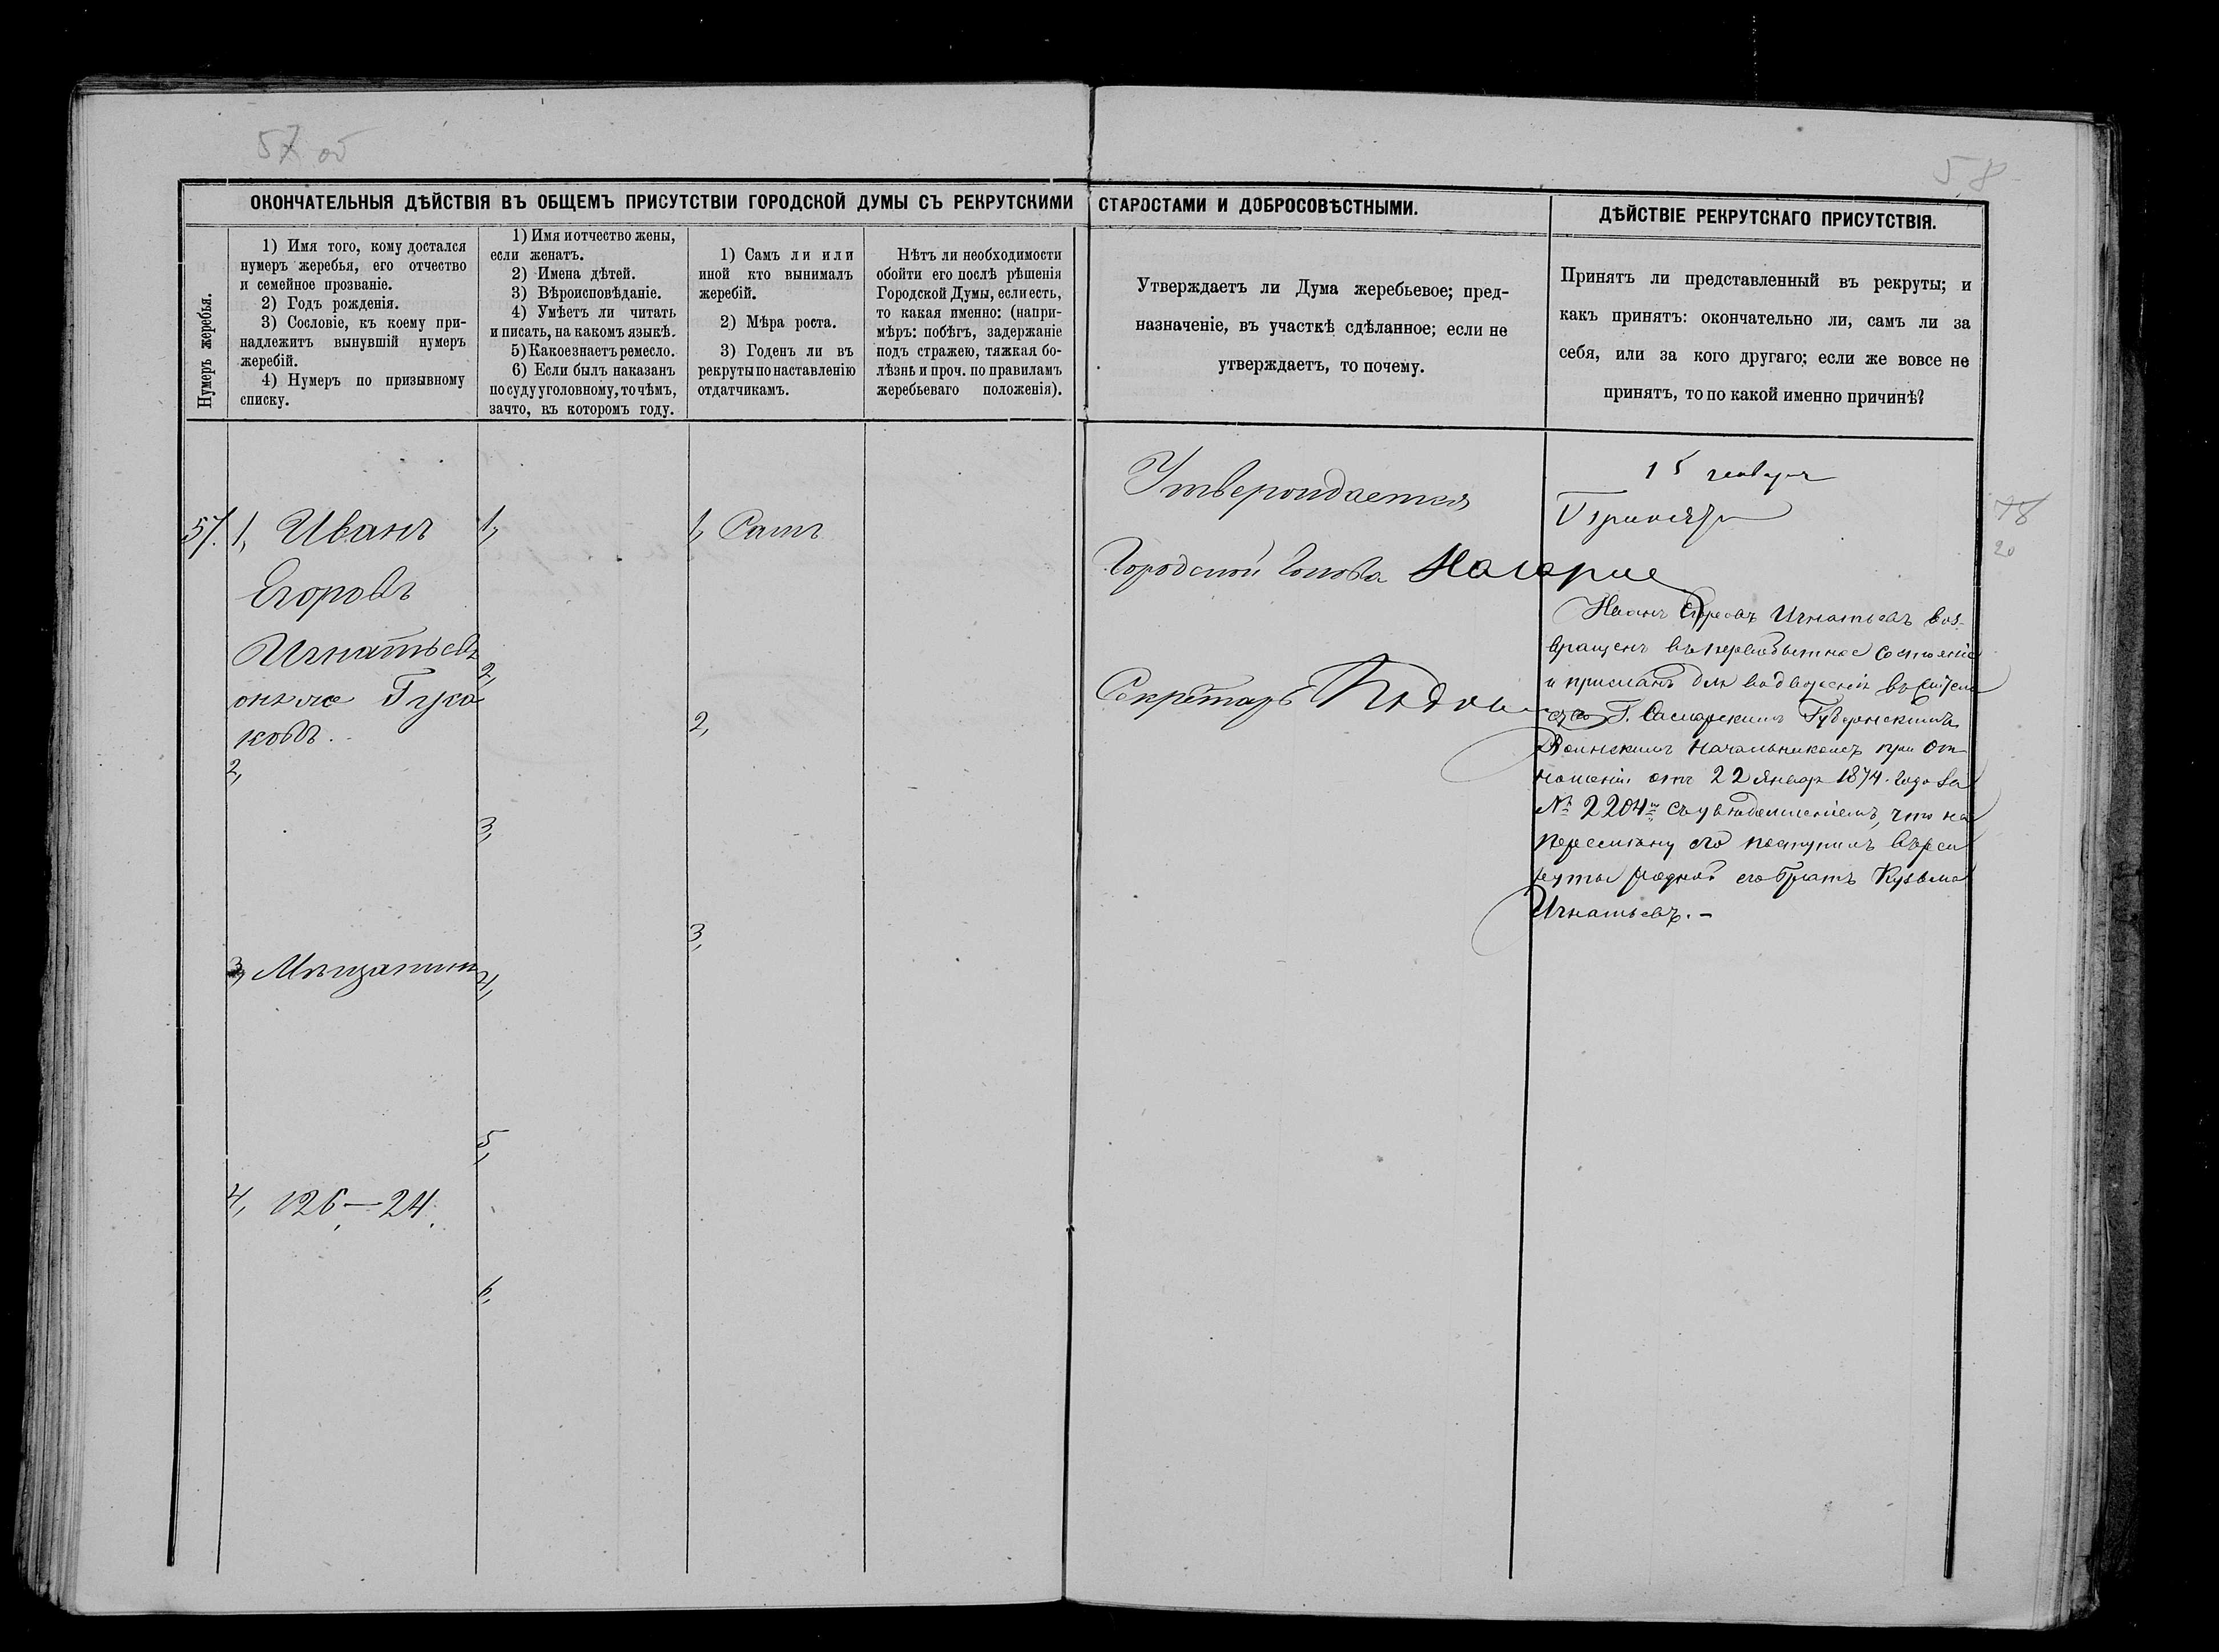 57 об
58
ОКОНЧАТЕЛЬНЫЯ ДѢЙСТВІЯ ВЪ ОБЩЕМЪ ПРИСУТСТВІИ ГОРОДСКОЙ ДУМЫ СЪ РЕКРУТСКИМИ СТАРОСТАМИ И ДОБРОСОВѢСТНЫМИ.
ДѢЙСТВІЕ РЕКРУТСКАГО ПРИСУТСТВІЯ.
Нумеръ жеребья.
1) Имя того, кому достался
нумеръ жеребья, его отчество
и семейное прозваніе.
2) Годъ рожденія.
3) Сословіе, къ коему при-
надлежитъ вынувшій нумеръ
жеребій.
4) Нумеръ по призывному
списку.
1) Имя и отчество жены,
если женатъ.
2) Имена дѣтей.
3) Вѣроисповѣданіе.
4) Умѣетъ ли читать
и писать, на какомъ языкѣ.
5) Какое знаетъ ремесло.
6) Если былъ наказанъ
по суду уголовному, то чѣмъ,
за что, въ которомъ году.
1) Самъ ли или
иной кто вынималъ
жеребій.
2) Мѣра роста.
3) Годенъ ли въ
рекруты по наставленію
отдатчикамъ.
Нѣтъ ли необходимости
обойти его послѣ рѣшенія
Городской Думы, если есть,
то какая именно: (напри-
мѣръ: побѣгъ, задержаніе
подъ стражею, тяжкая бо-
лѣзнь и проч. по правиламъ
жеребьеваго положенія).
Утверждаетъ ли Дума жеребьевое; пред-
назначеніе, въ участкѣ сдѣланное; если не
утверждаетъ, то почему.
Принятъ ли представленный въ рекруты; и
какъ принятъ: окончательно ли, самъ ли за
себя, или за кого другаго; если же вовсе не
принятъ, то по какой именно причинѣ?
57.
1, Иванъ
Егоровъ
Игнатьевъ
онъ же
ковъ.
2,
3, Мѣщанин
4, 126—24.
1,
2,
3,
4,
5,
6,
1, Самъ
2,
3,
Утверждается
Городской Голова
Секретарь
15 генваря
Принятъ
18
20
Иванъ Егоровъ Игнатьевъ воз-
вращенъ въ первобытное состояніе
и присланъ для водворенія въ
Г. Самарскимъ Губернскимъ
Воинскимъ Начальникомъ при от-
ношеніи отъ 22 Января 1874 года за
№ 2204 съ увѣдомленіемъ, что на
перемѣну его поступилъ въ рек
руты родной его братъ Кузьма
Игнатьевъ.-